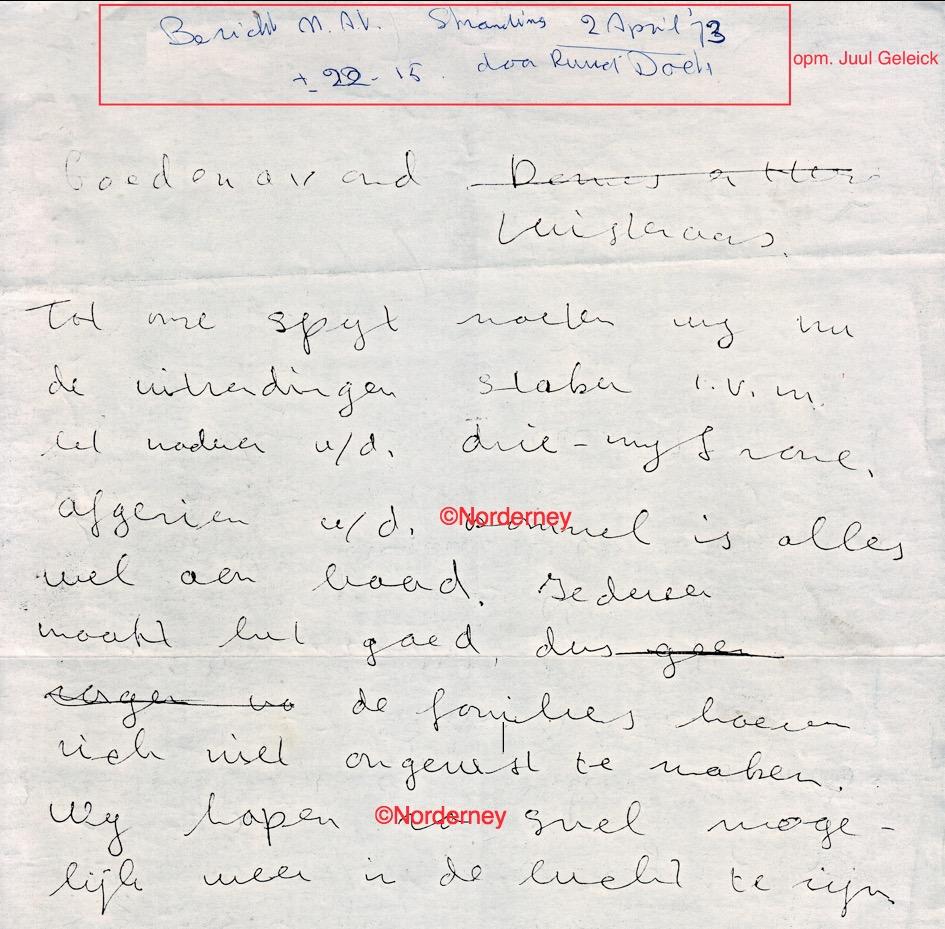 Bericht N.At. Stranding 2 April '73
± 22-15. door Ruud Doets
opm. Juul Geleick
Goedenavond ~~Dames en Heren~~
luisteraars.
Tot onze spyt moeten wy nu
de uitzendingen staken i.v.m.
het naderen v/d. drie-myls zone.
afgezien v/d. ©Norderney is alles
wel aan boord. Iedereen
maakt het goed, dus ~~geen~~
~~zorgen~~ de families hoeven
zich niet ongerust te maken.
Wy hopen zo snel moge-
©Norderney
lijk weer in de lucht te zijn